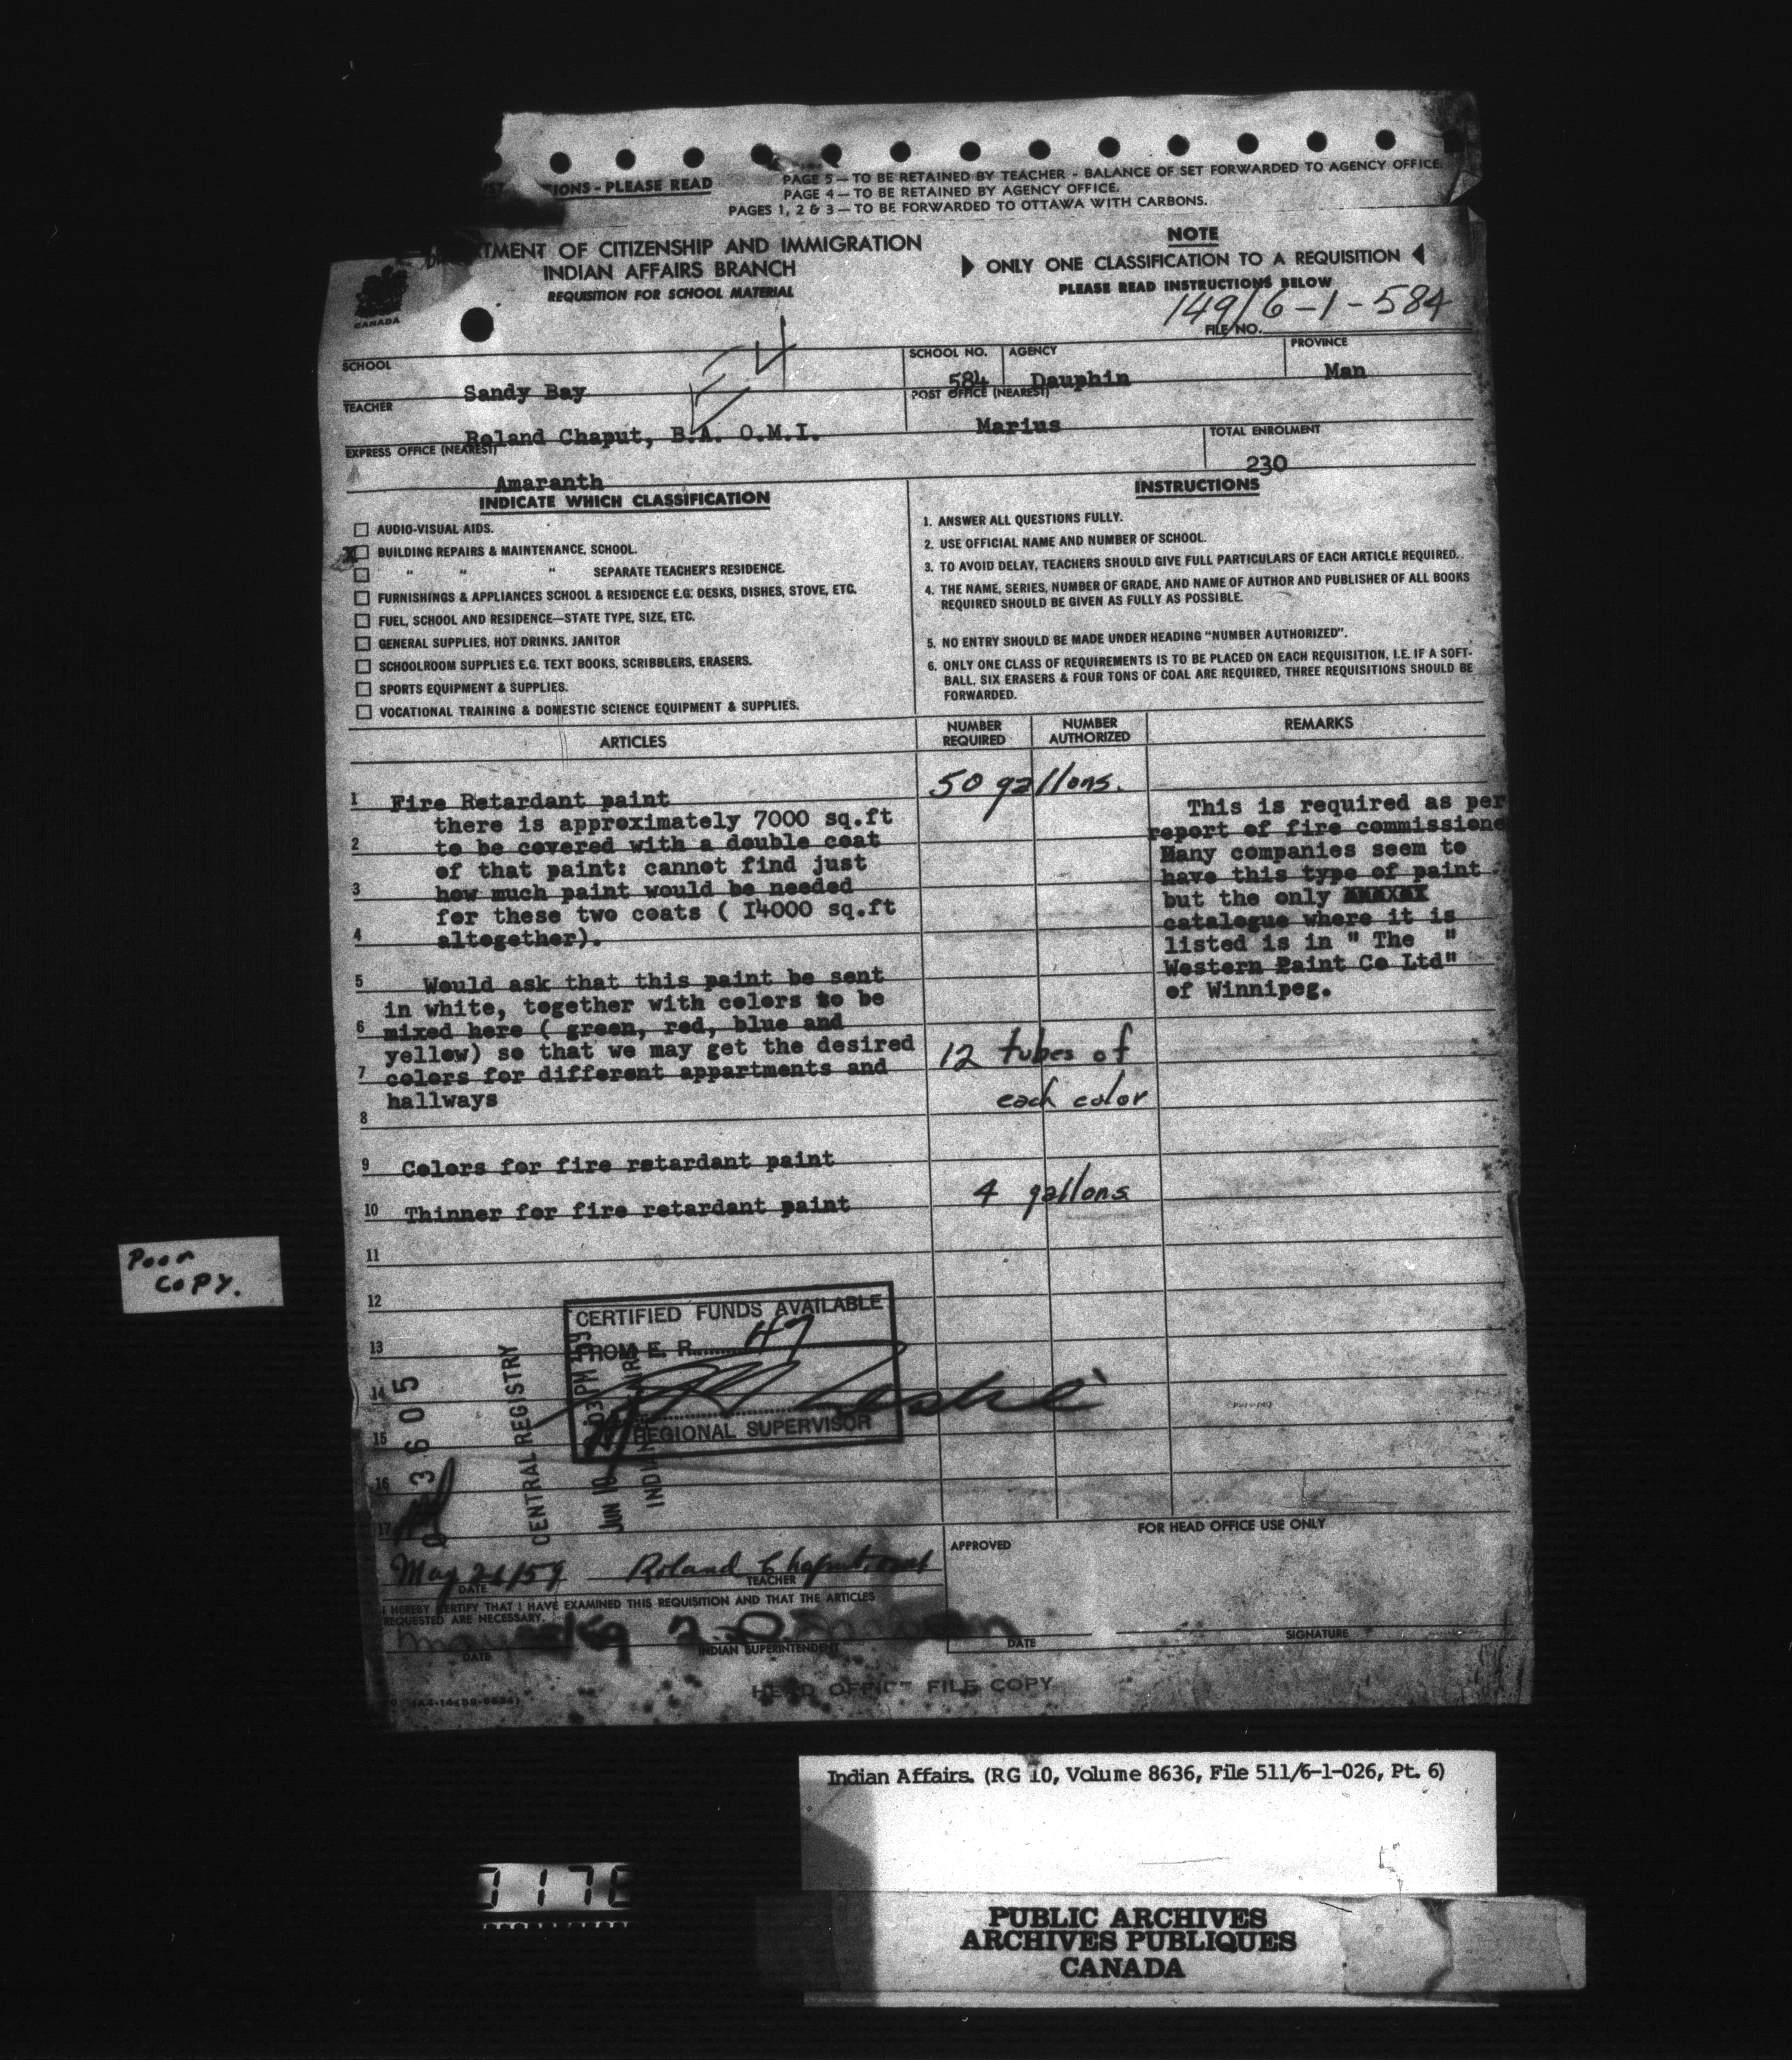 IONS - PLEASE READ
PAGE 5 — TO BE RETAINED BY TEACHER - BALANCE OF SET FORWARDED TO AGENCY OFFICE.
PAGE 4 — TO BE RETAINED BY AGENCY OFFICE.
PAGES 1, 2 & 3 — TO BE FORWARDED TO OTTAWA WITH CARBONS.
TMENT OF CITIZENSHIP AND IMMIGRATION
INDIAN AFFAIRS BRANCH
REQUISITION FOR SCHOOL MATERIAL
CANADA
NOTE
ONLY ONE CLASSIFICATION TO A REQUISITION
PLEASE READ INSTRUCTIONS BELOW
149/6-1-584
FILE NO.
SCHOOL
Sandy Bay
SCHOOL NO.
584
AGENCY
Dauphin
PROVINCE
Man
TEACHER
Roland Chaput, B.A. O.M.I.
POST OFFICE (NEAREST)
Marius
EXPRESS OFFICE (NEAREST)
Amaranth
TOTAL ENROLMENT
230
INDICATE WHICH CLASSIFICATION
AUDIO-VISUAL AIDS.
X BUILDING REPAIRS & MAINTENANCE, SCHOOL.
" " " SEPARATE TEACHER'S RESIDENCE.
FURNISHINGS & APPLIANCES SCHOOL & RESIDENCE E.G. DESKS, DISHES, STOVE, ETC.
FUEL, SCHOOL AND RESIDENCE—STATE TYPE, SIZE, ETC.
GENERAL SUPPLIES, HOT DRINKS, JANITOR
SCHOOLROOM SUPPLIES E.G. TEXT BOOKS, SCRIBBLERS, ERASERS.
SPORTS EQUIPMENT & SUPPLIES.
VOCATIONAL TRAINING & DOMESTIC SCIENCE EQUIPMENT & SUPPLIES.
INSTRUCTIONS
1. ANSWER ALL QUESTIONS FULLY.
2. USE OFFICIAL NAME AND NUMBER OF SCHOOL.
3. TO AVOID DELAY, TEACHERS SHOULD GIVE FULL PARTICULARS OF EACH ARTICLE REQUIRED.
4. THE NAME, SERIES, NUMBER OF GRADE, AND NAME OF AUTHOR AND PUBLISHER OF ALL BOOKS
REQUIRED SHOULD BE GIVEN AS FULLY AS POSSIBLE.
5. NO ENTRY SHOULD BE MADE UNDER HEADING "NUMBER AUTHORIZED".
6. ONLY ONE CLASS OF REQUIREMENTS IS TO BE PLACED ON EACH REQUISITION, I.E. IF A SOFT-
BALL, SIX ERASERS & FOUR TONS OF COAL ARE REQUIRED, THREE REQUISITIONS SHOULD BE
FORWARDED.
ARTICLES
NUMBER
REQUIRED
NUMBER
AUTHORIZED
REMARKS
1 Fire Retardant paint
50 gallons.
there is approximately 7000 sq.ft
2 to be covered with a double coat
of that paint: cannot find just
3 how much paint would be needed
for these two coats ( I4000 sq.ft
4 altogether).
5 Would ask that this paint be sent
in white, together with colors to be
6 mixed here ( green, red, blue and
yellow) so that we may get the desired
7 colors for different appartments and
hallways
8
12 tubes of
each color
This is required as per
report of fire commissione
Many companies seem to
have this type of paint
but the only
catalogue where it is
listed is in " The "
Western Paint Co Ltd"
of Winnipeg.
9 Colors for fire retardant paint
10 Thinner for fire retardant paint
4 gallons
11
12
13
14
15
16
17
CERTIFIED FUNDS AVAILABLE
FROM E. R. H7
REGIONAL SUPERVISOR
3605
CENTRAL REGISTRY
JUN 10
May 26/59
DATE
Roland Chaput, omi
TEACHER
I HEREBY CERTIFY THAT I HAVE EXAMINED THIS REQUISITION AND THAT THE ARTICLES
REQUESTED ARE NECESSARY.
DATE
INDIAN SUPERINTENDENT
FOR HEAD OFFICE USE ONLY
APPROVED
DATE
SIGNATURE
HEAD OFFICE FILE COPY
Poor
COPY.
Indian Affairs. (RG 10, Volume 8636, File 511/6-1-026, Pt. 6)
PUBLIC ARCHIVES
ARCHIVES PUBLIQUES
CANADA